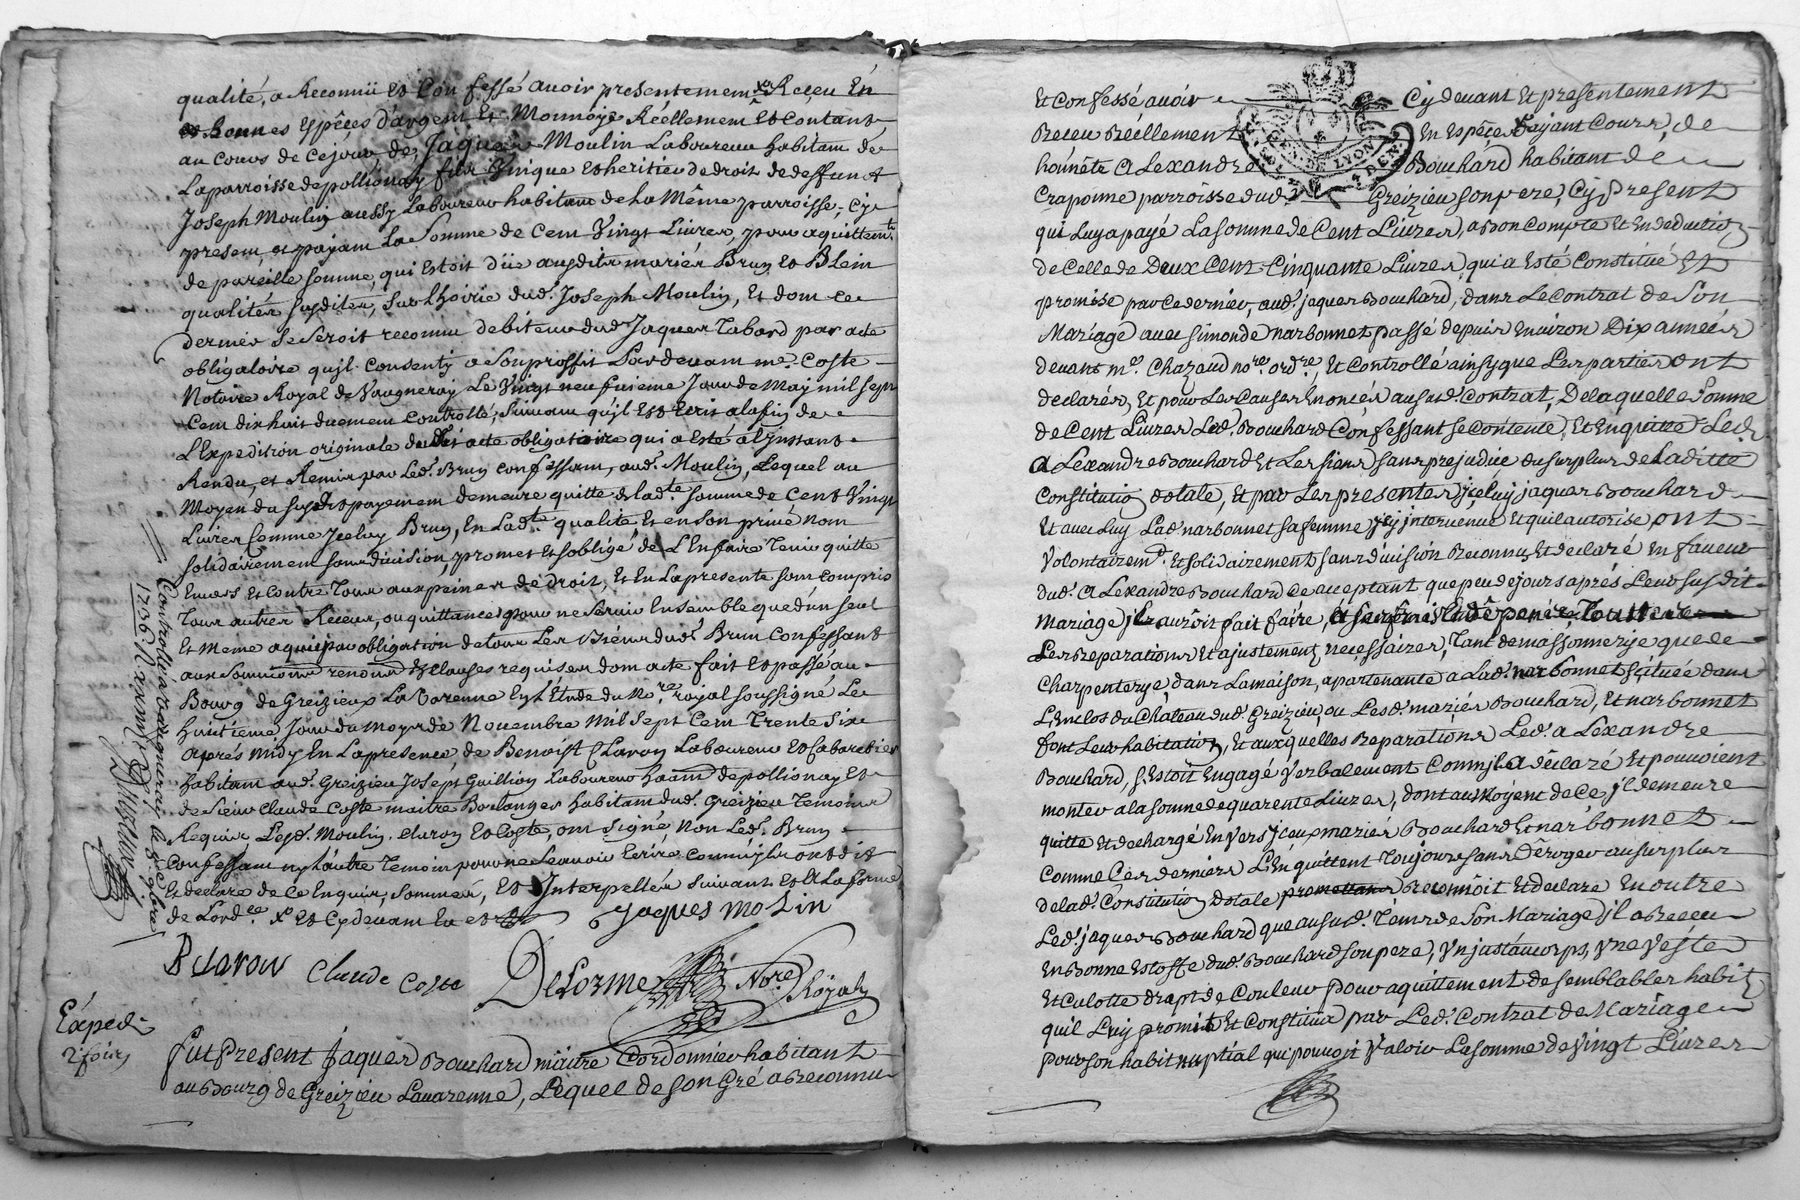 qualité, a Reconnü et Confessé avoir presentement Receu En
et Bonnes Espêces d'argent Et Monnoye Réellemen Et Contant
au cours de ce jour, de Jaques Moulin Laboureur habitam de
La parroisse de pollionay fils Vnique et heritier de droit de deffunct
Joseph Moulin aussy Laboureur habitam de La Même parroisse, Cy
presem, et payam La Somme de Cem Vingt Livres, pour aquittemt
de pareille Somme, qui Estoit düe ausdits mariés Brun Et Blein
qualités susdites, sur Lhoirie dud. Joseph Moulin, Et dom ce
dernier Se Seroit reconnu debiteur dud Jaques Tabard par acte
obligatoire qu'jl Consenty a Son proffit Pardevam me. Coste
Notaire Royal de Vaugneray Le Vingt neufvieme Jour de May mil Sept
Cem dix huit düement Controllé, Suivam qu'jl Est Ecrit a la fin de
L'Expedition originale dudit acte obligatoire qui a Esté a L'jnstant
Rendu, et Remis par Led. Brun Confessam, aud. Moulin, Lequel au
Moyen du susdit payemem demeure quitte de lad.te Somme de Cent Vingt
Livres Comme Jceluy Brun, En Lad.te qualité Et en Son privé Nom
Solidairemem Sans division, promet Et s'obligé de L'En faire Tenir quitte
Envers Et Contre Tous aux peines de droit, Et En La presente Som Compris
Tous autres Receus, ou quittances pour ne Servir Ensemble que d'un Seul
Et Meme acquit par obligation de tous Les Biens dud. Brun Confessant
aux Soumions renons & Clauses requises dom acte fait Et passé au
Bourg de Greizieux La Varenne En L'Étude du No.re royal Soussigné Le
huitieme Jour du Moys de Novembre Mil Sept Cem Trente Six
aprés midy En La presence de Benoist Claron Laboureur et Cabaretier
habitam aud. Greizieu Joseph Guillion Laboureur haam de pollionay Et
de Sieur Claude Coste maitre Boulanger habitam dud. Greizieu Temoins
Requis Lesd. Moulin, Claron Et Coste, om Signé, Non Led. Brun
Confessam ny L'autre Temoin pour ne Scavoir Ecrire Comm'jls ont dit
Et declaré de Ce Enquis, Sommés, Et Interpellés Suivant Et A La forme
de L'ord.ce x Et Cy devam En et
Jaques molin
B claron Claude Coste Delorme No.re Royal
Controllé a Vaugneray le 8e 9bre
1736 R
Exped.
2 fois
fut Present Jaques Bouchard maitre Cordonnier habitant
au Bourg de Greizieu Lavarenne, Lequel de Son Gré a Reconnu
Et Confessé avoir Cy devant Et presentement
Receu Réellement En Espêces ayant Cours, de
honnête Alexandre Bouchard habitant de
Craponne parroisse dud. Greizieu Son pere, Cy present
qui Luy a payé La Somme de Cent Livres, a bon Compte Et En deduction
de Celle de Deux Cent Cinquante Livres, qui a Esté Constitué Et
promise par Ce dernier, aud. jaques Bouchard, dans Le Contrat de Son
Mariage avec Simonde Narbonnet passé depuis Environ Dix années
devant m.e Chazaud no.re ord.re, Et Controllé ainsy que Les parties ont
declarés, Et pour Les Causes Enoncés au Susd. Contrat, De laquelle Somme
de Cent Livres Led. Bouchard Confessant Se Contente, Et En quitte Led.
Alexandre Bouchard Et Les Siens Sans prejudice du Surplus de Laditte
Constitution dotale, Et par Les presentes jceluy jaques Bouchard
Et avec Luy Lad. Narbonnet Sa femme jcy intervenue Et qu'il autorise ont
Volontairemt. Et Solidairement Sans division Reconnus Et declaré En faveur
dud. Alexandre Bouchard Ce acceptant que peu de jours aprés Leur Susdit
Mariage jl auroit fait faire, a Ses frais Et dêpens Toutte
Les Reparations Et ajustements necessaires, Tant de massonnerye que de
Charpenterye dans La maison, apartenante a Lad. Narbonnet Scituée dans
L'Enclos du Château dud. Greizieu, ou Lesd. mariés Bouchard, Et Narbonnet
font Leur habitation, Et auxquelles Reparations Led. Alexandre
Bouchard, S'Estoit Engagé Verbalement Comm'jl a dêclaré Et pouvoient
monter a la Somme de quarente Livres, dont au Moyent de Ce jl demeure
quitte Et dechargé Envers jceux mariés Bouchard Et Narbonnet
Comme Ces derniers L'En quittent Toujours Sans Dêroger au Surplus
de Lad. Constitution dotale promettans reconnoit Et declare En outre
Led. jaques Bouchard que au Susd. Tems de Son Mariage jl a Receu
En Bonne Estoffe dud. Bouchard Son pere, Vn justaucorps, Vne Veste
Et Culotte drapt de Couleur pour aquittement de Semblables habits
qu'il Luy promit Et Constitüa par Led. Contrat de Mariage
pour Son habit nuptial qui pouvoit Valoir La Somme de Vingt Livres